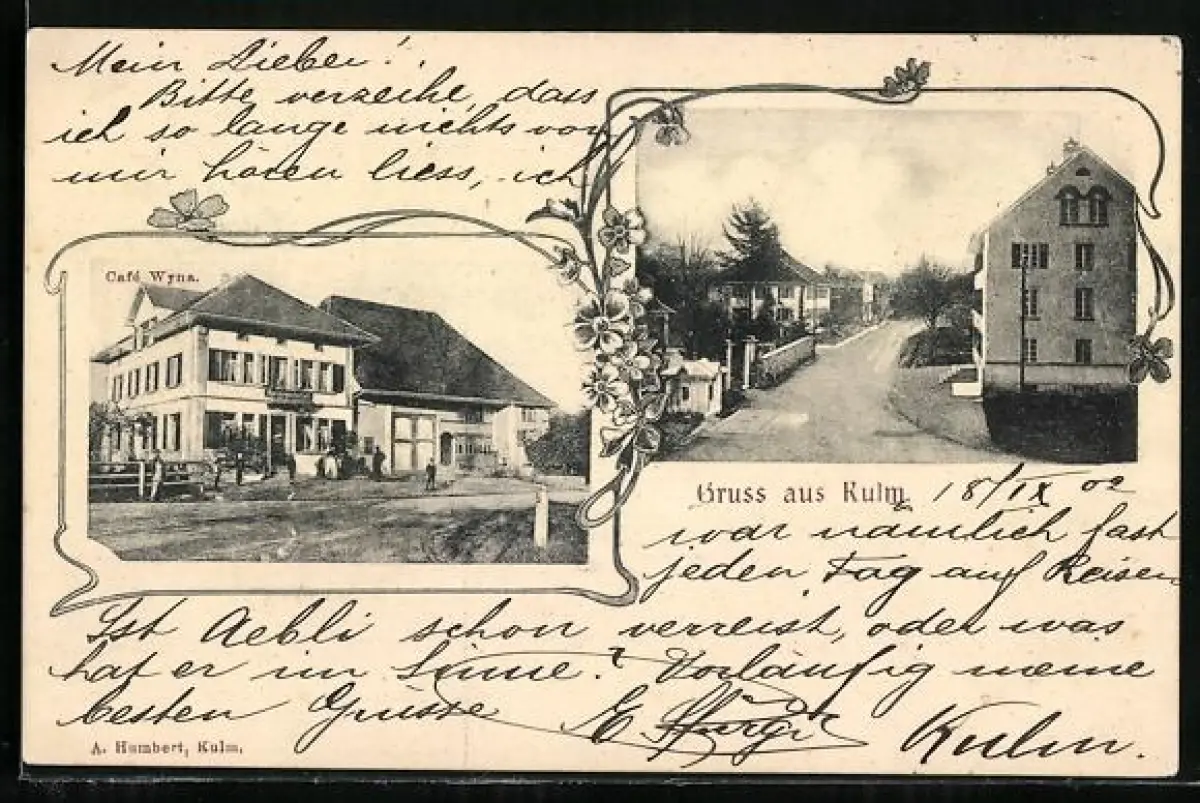 Mein Lieber!
Bitte verzeihe, dass
ich so lange nichts von
mir hören liess, ich
Café Wyna.
Gruss aus Kulm.
18/IX 02
war nämlich fast
jeden Tag auf Reisen
Ist Aebli schon verreist, oder was
hat er im Sinne? Vorläufig meine
besten Grüsse E.
Kulm.
A. Humbert, Kulm.